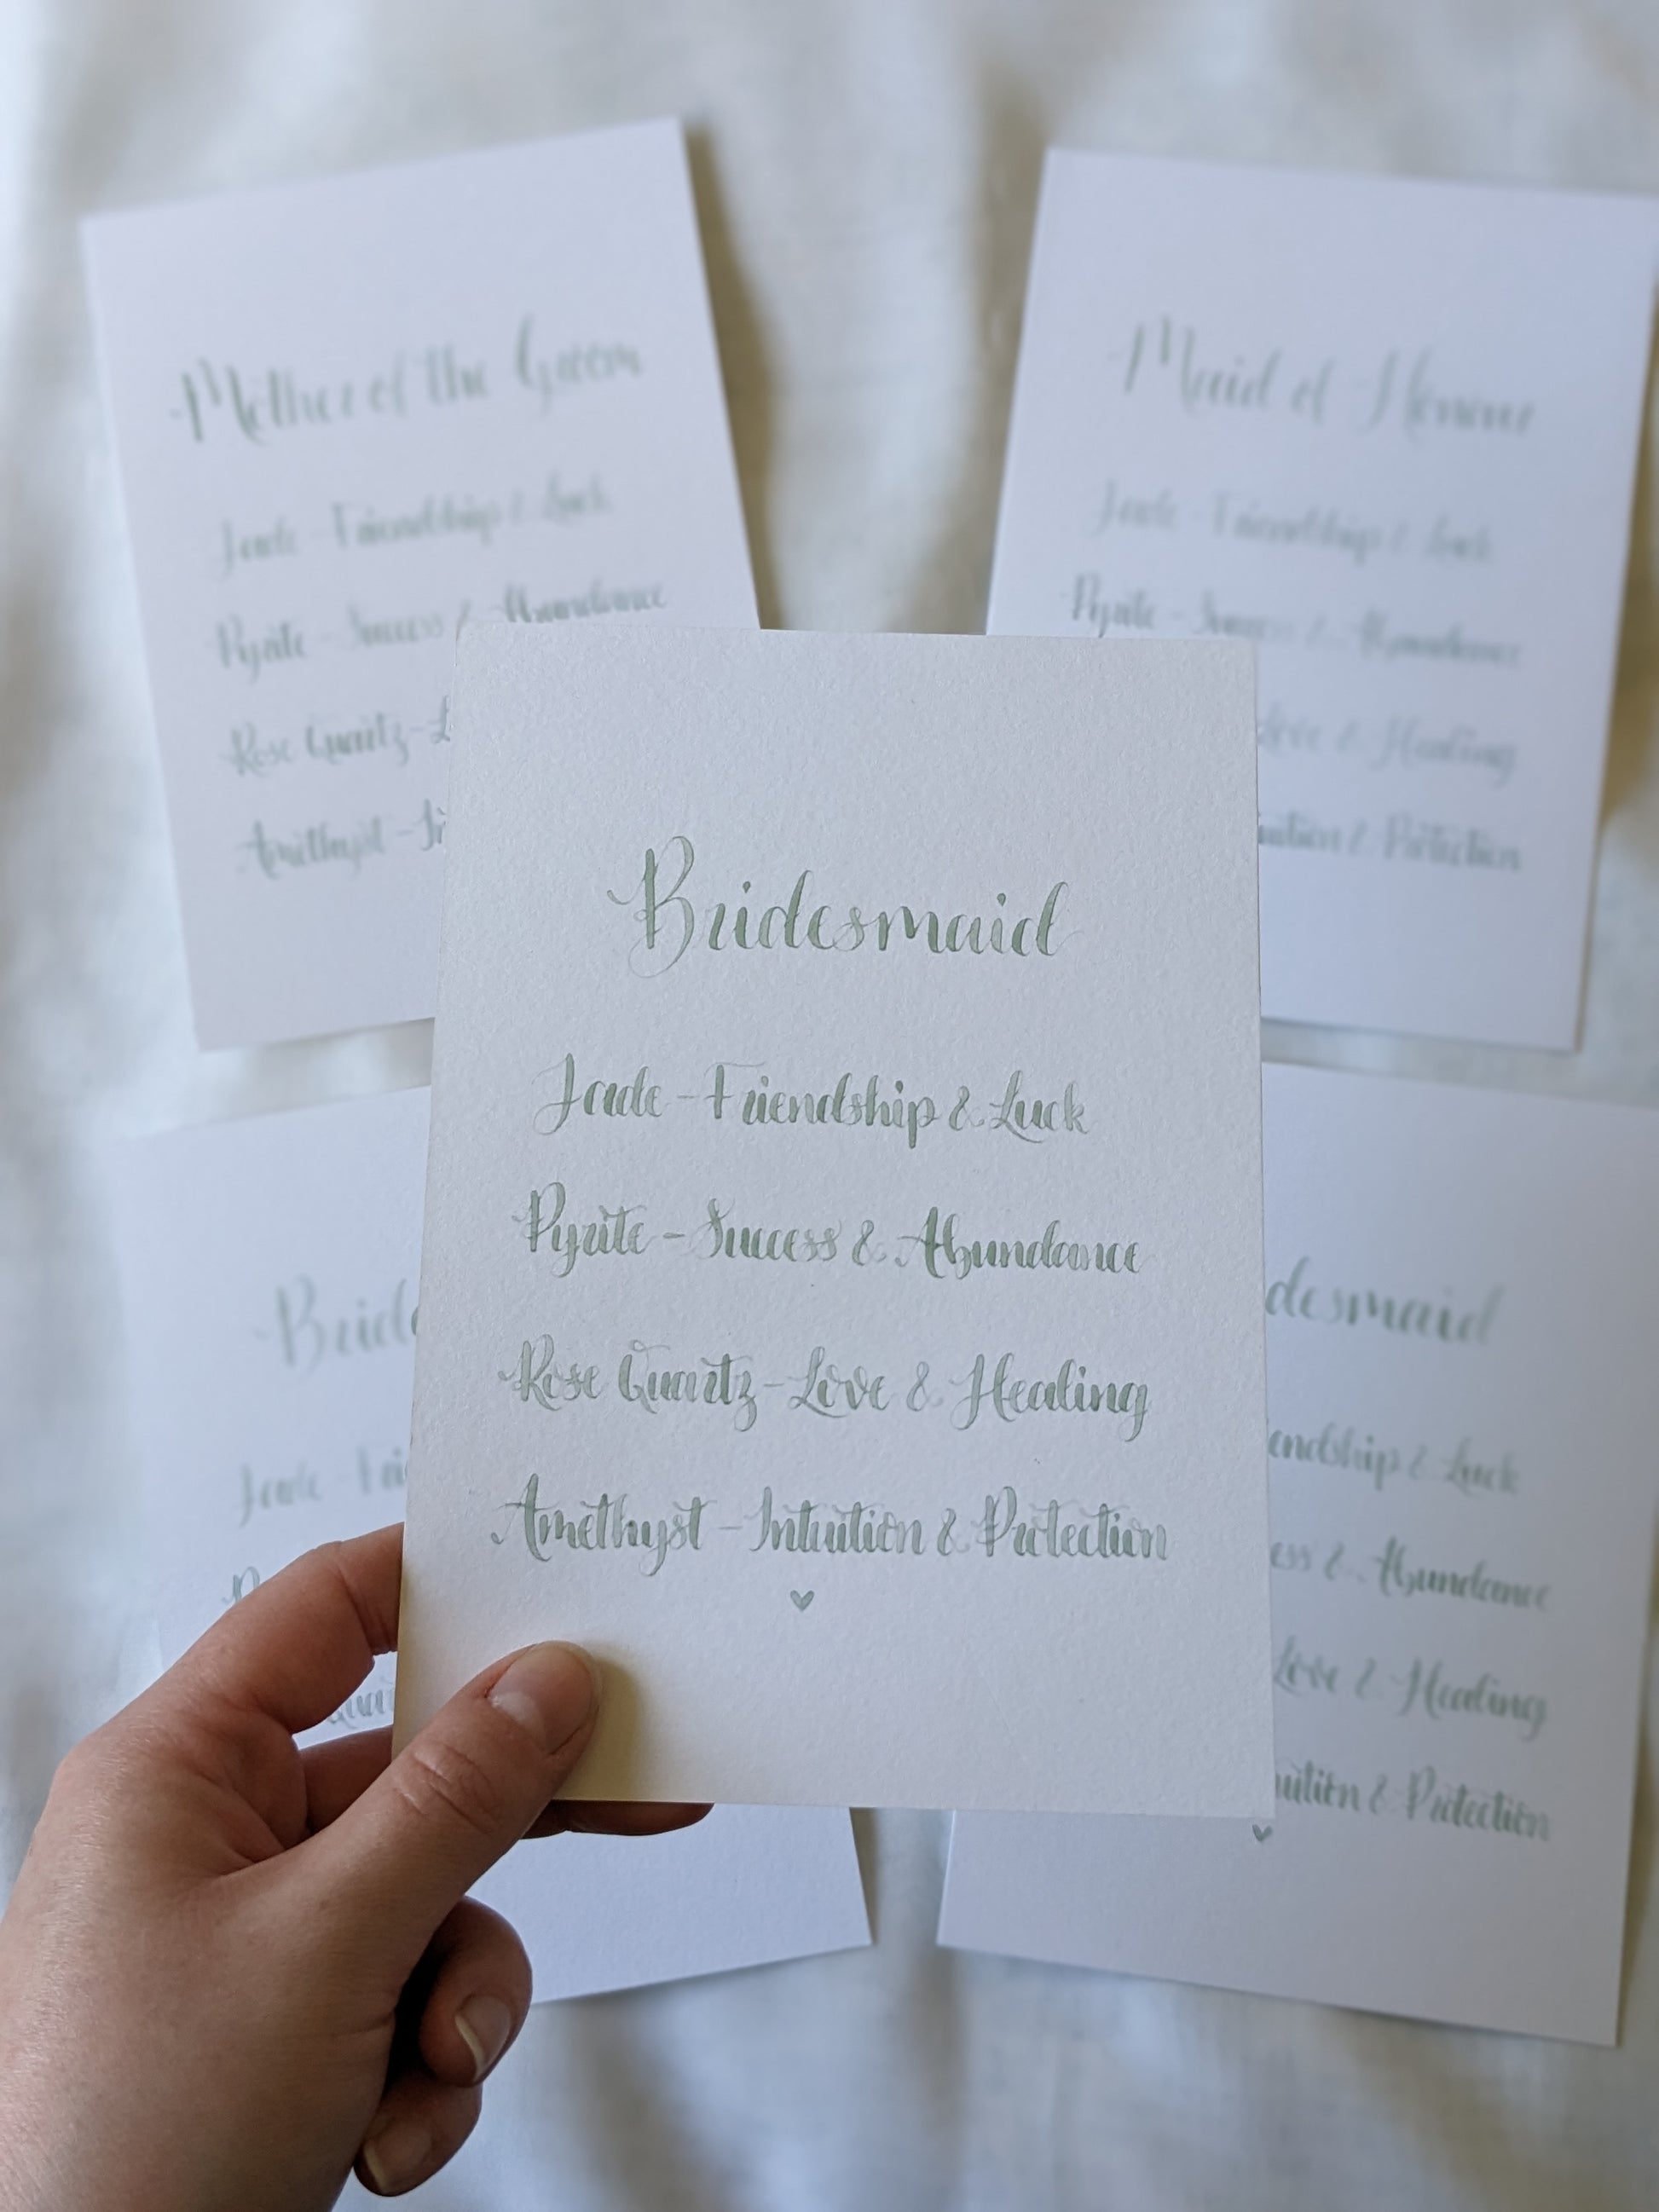 Mother of the Groom
Jade - Friendship & Luck
Pyrite - Success & Abundance
Rose Quartz - L
Amethyst - In
Maid of Honour
Jade - Friendship & Luck
Pyrite - Success & Abundance
Love & Healing
uition & Protection
Bridesmaid
Jade - Friendship & Luck
Pyrite - Success & Abundance
Rose Quartz - Love & Healing
Amethyst - Intuition & Protection
Bride
Jade - Frie
P
Quar
desmaid
endship & Luck
ess & Abundance
Love & Healing
uition & Protection